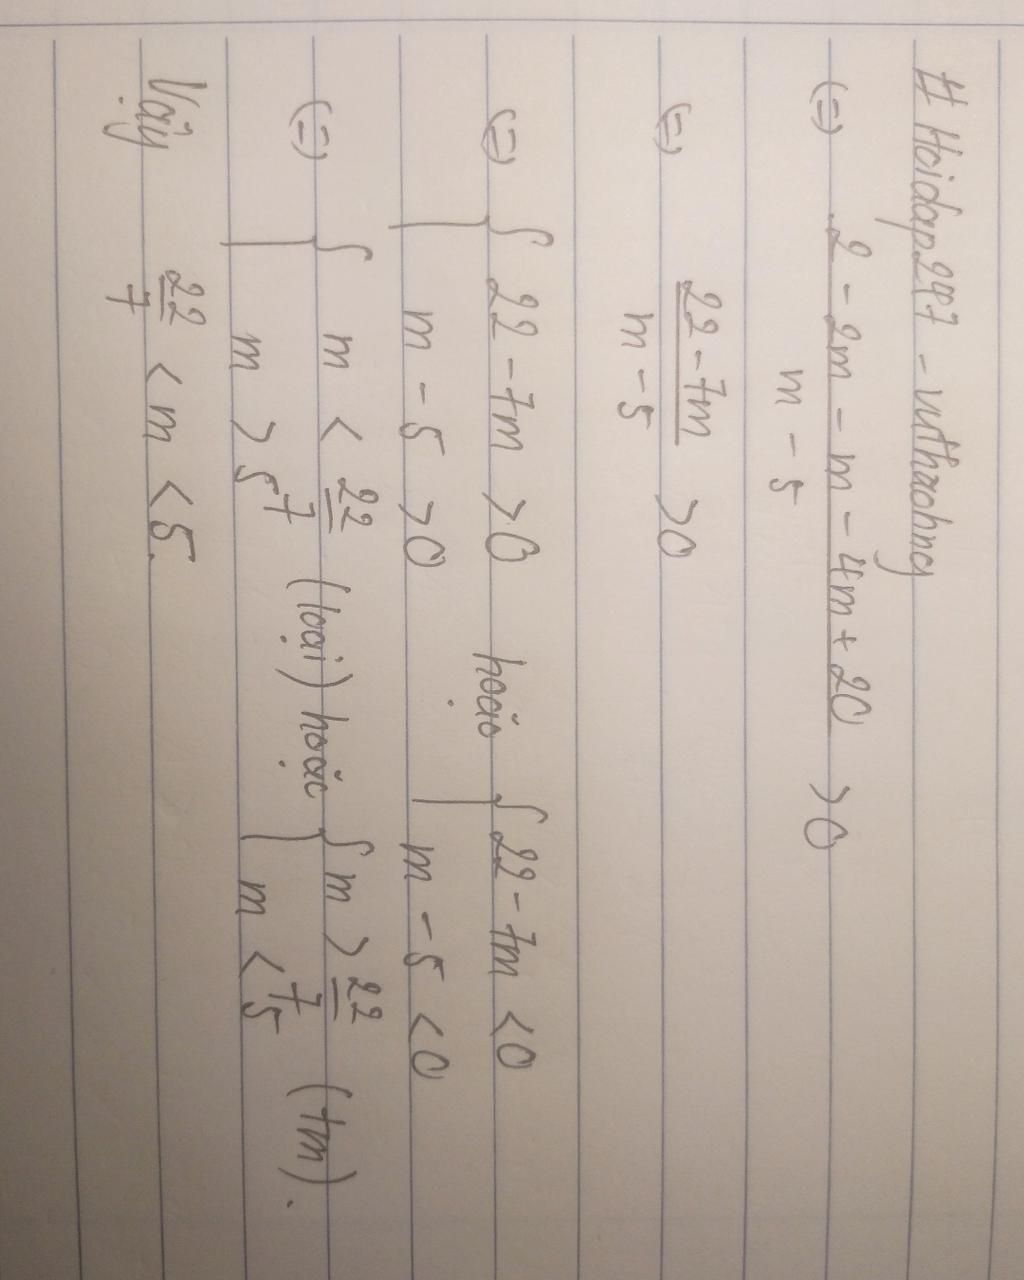 # Hoidap247 - vuthaohng
(=) 2 - 2m - m - 4m + 20 / m - 5 > 0
(=) 22 - 7m / m - 5 > 0
(=) { 22 - 7m > 0 hoặc { 22 - 7m < 0
m - 5 > 0 m - 5 < 0
(=) { m < 22/7 (loại) hoặc { m > 22/7 (tm).
m > 5 m < 5
Vậy 22/7 < m < 5.